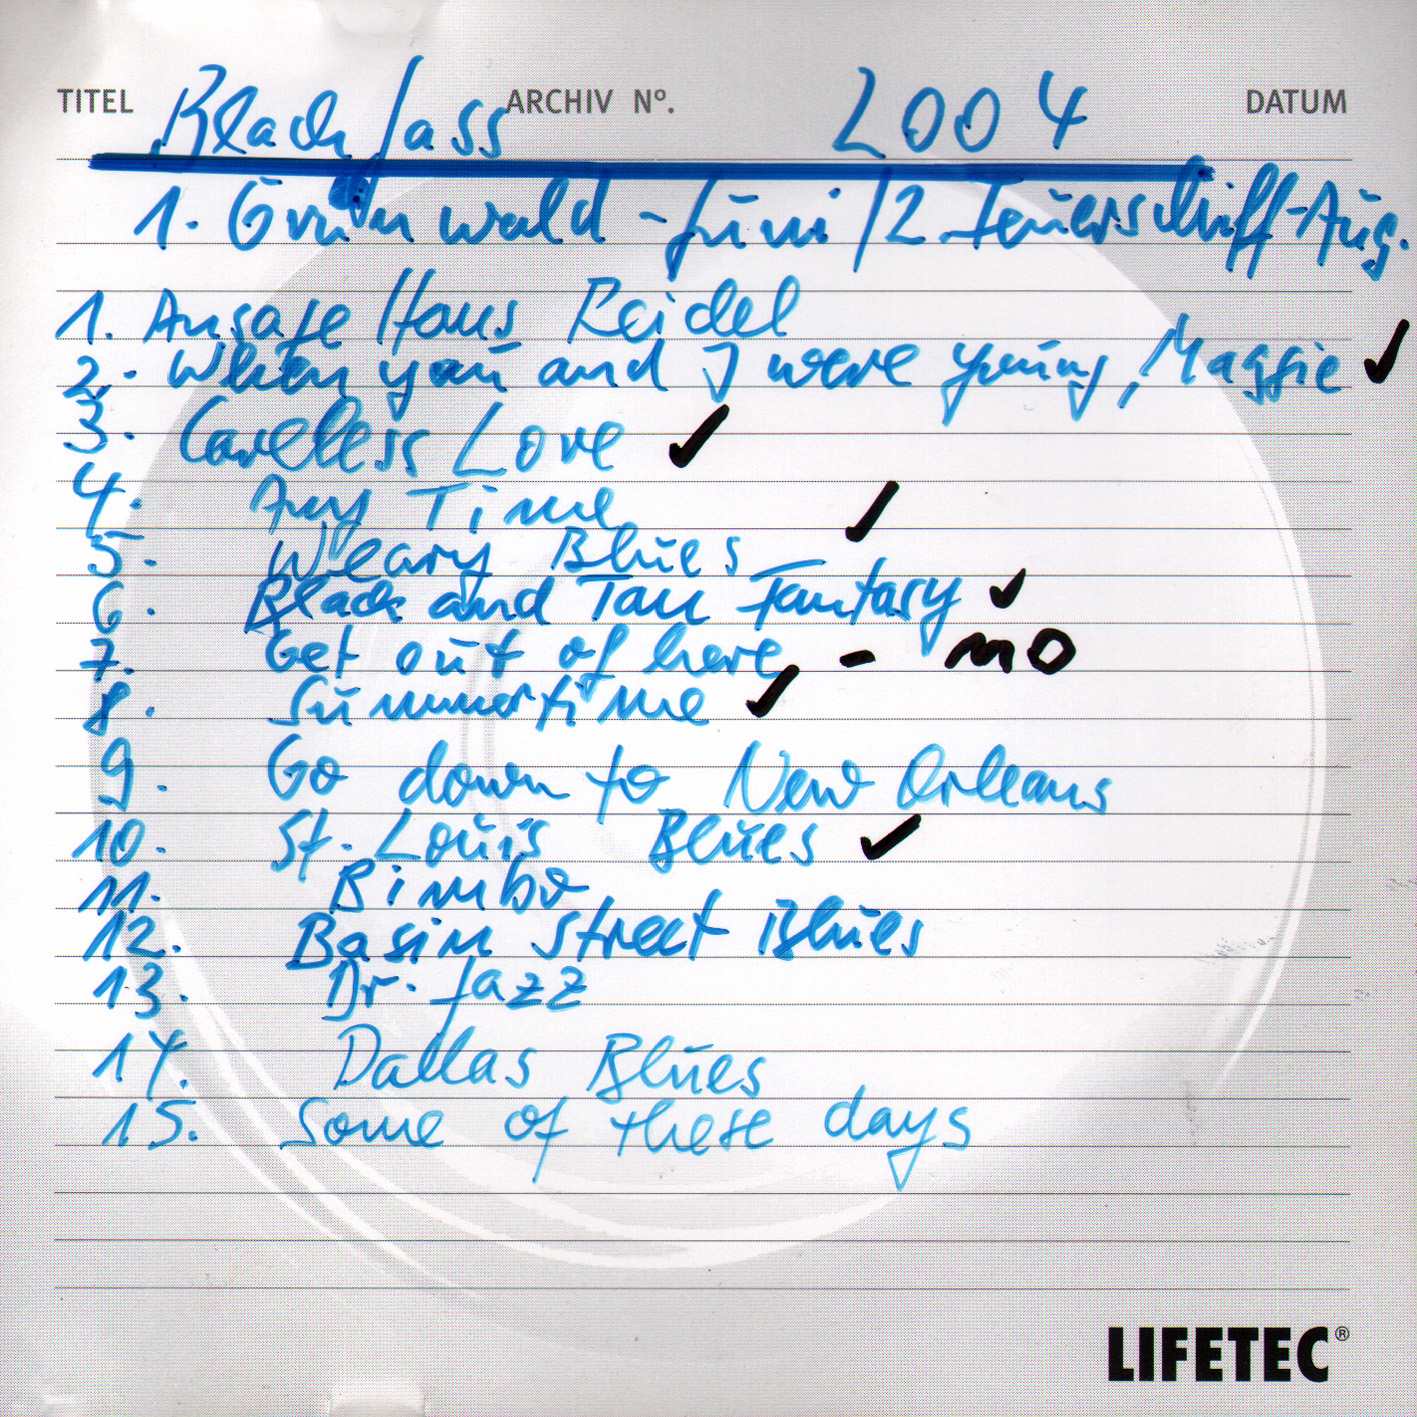 TITEL Black Jass ARCHIV Nº. 2004 DATUM
1. Grünwald - Juni / 2. Feuerschiff - Aug.
1. Ansage Hans Reidel
2. When you and I were young, Maggie ✓
3. Careless Love ✓
4. Any Time ✓
5. Weary Blues
6. Black and Tan Fantasy ✓
7. Get out of here, - mo
8. Summertime ✓
9. Go down to New Orleans
10. St. Louis Blues ✓
11. Bimbo
12. Basin Street Blues
13. Dr. Jazz
14. Dallas Blues
15. Some of these days
LIFETEC®